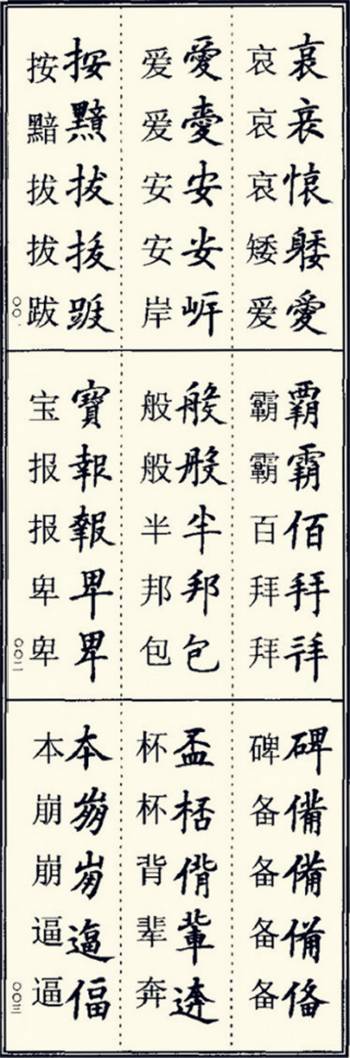 愛
哀哀哀矮爱
愛安安
爱爱安安岸
按拔
按黯拔拔跋
〇〇一
覇霸佰拜
霸霸百拜拜
般般半邦包
般般半邦包
寶報報卑卑
宝报报卑卑
〇〇二
碑備備備俻
碑备备备备
盃桮偝輩逩
杯杯背辈奔
本逼偪
本崩崩逼逼
〇〇三